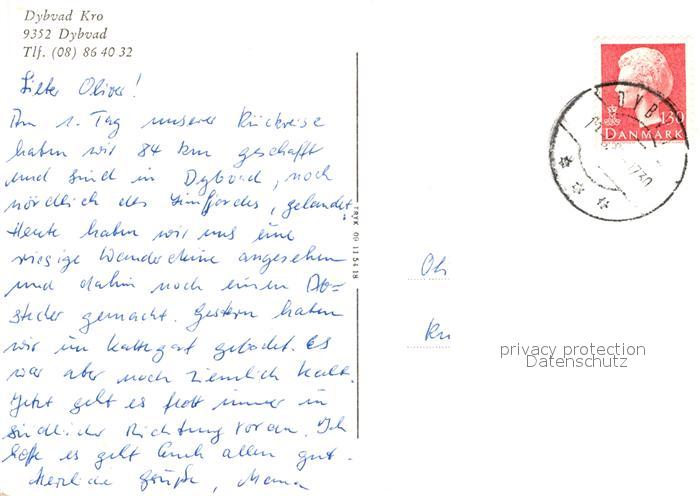 Dybvad Kro
9352 Dybvad
Tlf. (08) 86 40 32
Lieber Oliver!
Am 1. Tag unserer Rückreise
haben wir 84 km geschafft
und sind in Dybvad, noch
nördlich des Limfjordes, gelandet.
Heute haben wir uns eine
riesige Wanderdüne angesehen
und dahin noch einen Ab=
stecher gemacht. Gestern haben
wir im Kattegat gebadet. Es
war aber noch ziemlich kalt.
Jetzt geht es flott immer in
südlicher Richtung voran. Ich
hoffe es geht Euch allen gut.
Herzliche Grüße, Mama
TRYK 09 11 54 18
130
DANMARK
DYB
1730
Oli
privacy protection
Datenschutz